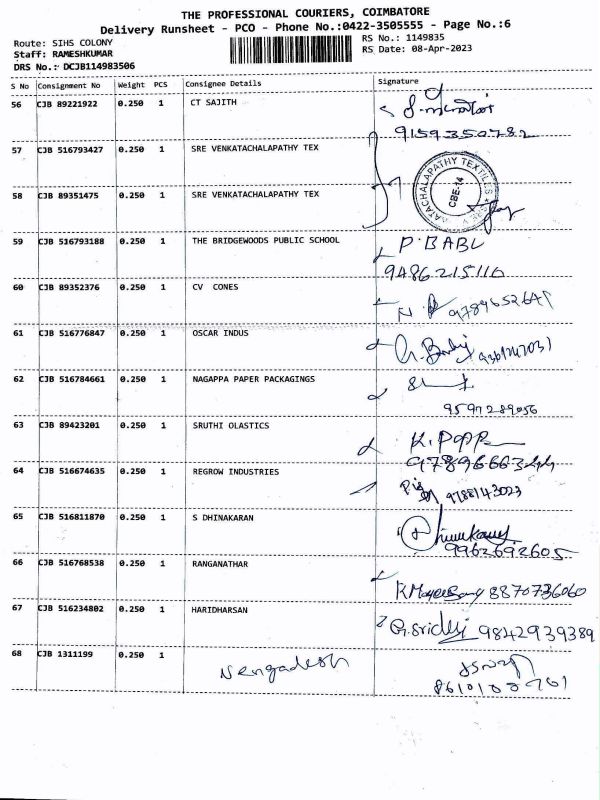 THE PROFESSIONAL COURIERS, COIMBATORE
Delivery Runsheet - PCO - Phone No.:0422-3505555 - Page No.:6
Route: SIHS COLONY RS No.: 1149835
Staff: RAMESHKUMAR RS Date: 08-Apr-2023
DRS No.: DCJB114983506
S No Consignment No Weight PCS Consignee Details Signature
56 CJB 89221922 0.250 1 CT SAJITH
9159350782
57 CJB 516793427 0.250 1 SRE VENKATACHALAPATHY TEX
58 CJB 89351475 0.250 1 SRE VENKATACHALAPATHY TEX
CBE-14
59 CJB 516793188 0.250 1 THE BRIDGEWOODS PUBLIC SCHOOL P. BABU
9486215110
60 CJB 89352376 0.250 1 CV CONES
9789652641
61 CJB 516776847 0.250 1 OSCAR INDUS
62 CJB 516784661 0.250 1 NAGAPPA PAPER PACKAGINGS
9597289056
63 CJB 89423201 0.250 1 SRUTHI OLASTICS
64 CJB 516674635 0.250 1 REGROW INDUSTRIES
9788143023
65 CJB 516811870 0.250 1 S DHINAKARAN
9962692605
66 CJB 516768538 0.250 1 RANGANATHAR
8870736060
67 CJB 516234802 0.250 1 HARIDHARSAN
9842939389
68 CJB 1311199 0.250 1 Nengadesh